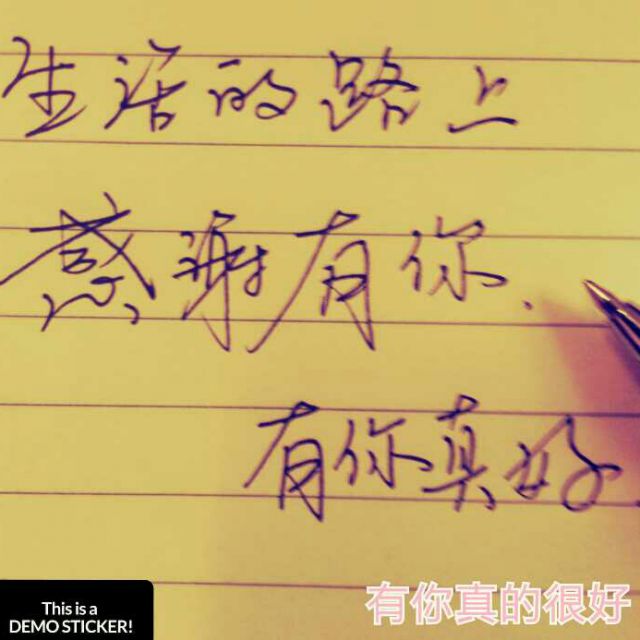 生活的路上
感谢有你.
有你真好
有你真的很好
This is a
DEMO STICKER!